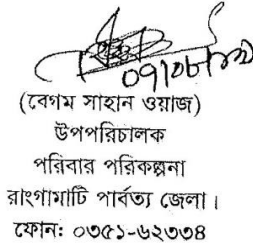 (বেগম সাহান ওয়াজ)
উপপরিচালক
পরিবার পরিকল্পনা
রাংগামাটি পার্বত্য জেলা।
ফোন: ০৩৫১-৬২৩৩৪